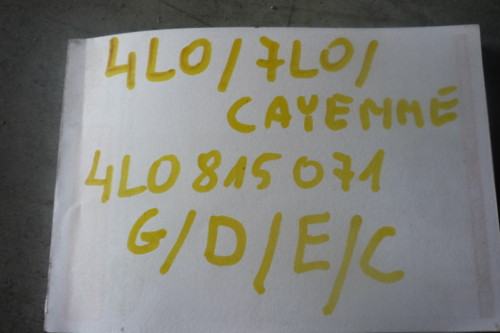 4LO/7LO/
CAYEMMÉ
4LO 815 071
G/D/E/C